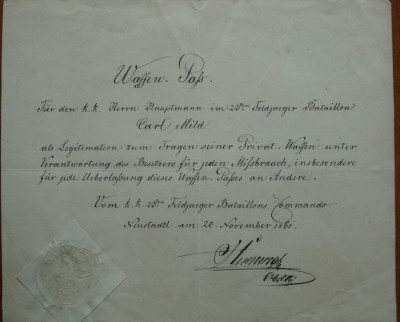 Waffen-Paß.
Für den k. k. Herrn Hauptmann im 28ten Feldjaeger Bataillon
Carl Mild
als Legitimation zum Tragen seiner Privat-Waffen unter
Verantwortung des Besitzers für jeden Mißbrauch, insbesondere
für jede Ueberlaßung dieses Waffen-Paßes an Andere.
Vom k. k. 28ten Feldjaeger Bataillons Commando
Neustadtl am 20. November 1861.